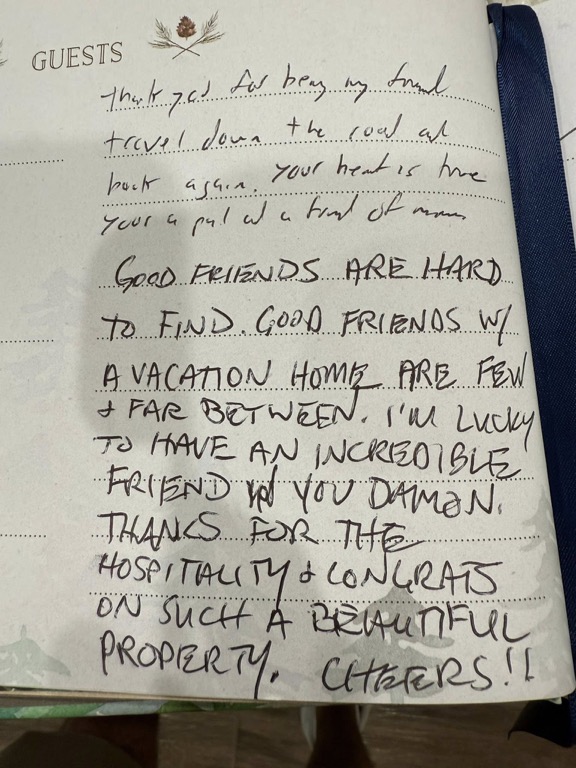 GUESTS
Thank you for being my friend
travel down the road and
back again. Your heart is true
your a pal and a friend of
GOOD FRIENDS ARE HARD
TO FIND. GOOD FRIENDS W/
A VACATION HOME ARE FEW
& FAR BETWEEN. I'M LUCKY
TO HAVE AN INCREDIBLE
FRIEND IN YOU DAMON.
THANKS FOR THE
HOSPITALITY & CONGRATS
ON SUCH A BEAUTIFUL
PROPERTY. CHEERS!!